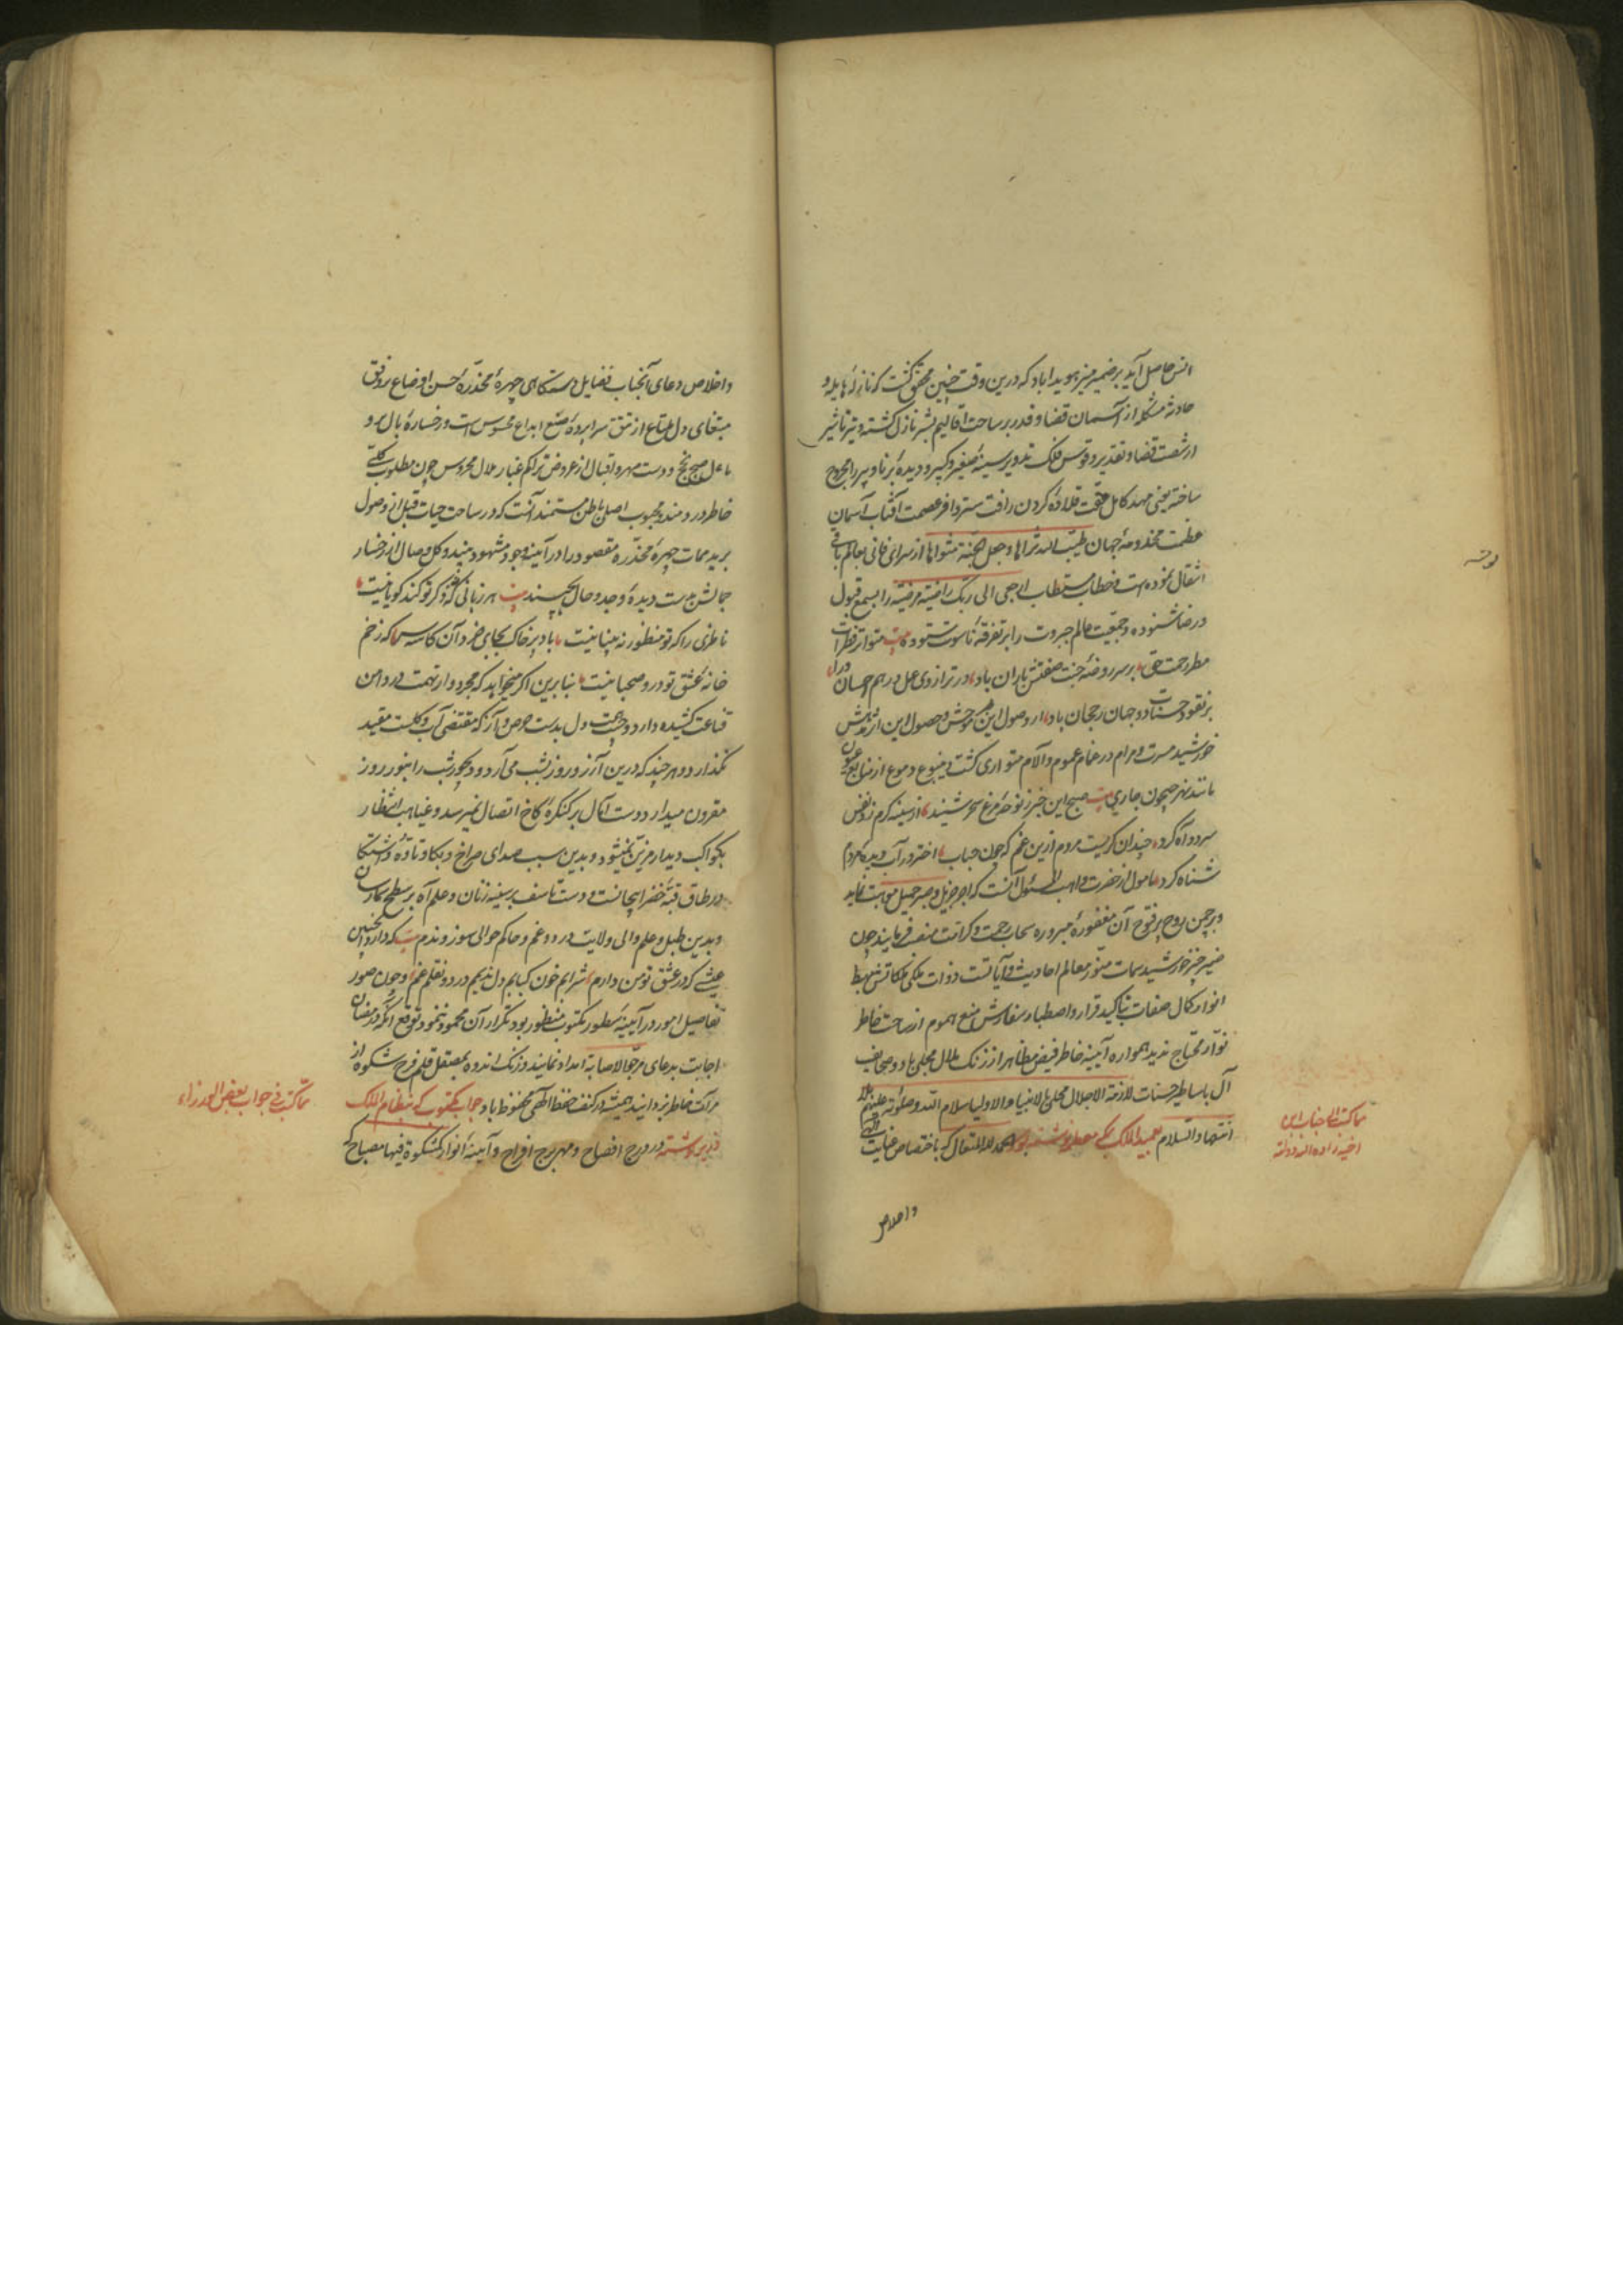 انس حاصل آید بر ضمیر منیر هویدا باد که درین وقت چنین محقق گشت که نازلهٔ هایله و
حادثهٔ مشکله از آسمان قضا و قدر بر ساحت اقالیم بشر نازل گشته و تیر تاثیر
از شصت قضا و تقدیر و قوس فلک تدویر سینهٔ صغیر و کبیر و دیدهٔ برنا و پیر را مجروح
ساخته یعنی مهد کامل عفت قلادهٔ گردن رافت ستر وافر عصمت آفتاب آسمان
عظمت مخدومهٔ جهان طیب الله ثراها و جعل الجنة مثواها از سرای فانی بعالم باقی
انتقال نموده است و خطاب مستطاب ارجعی الی ربک راضیة مرضیة را بسمع قبول
و رضا شنوده و جمعیت عالم جبروت را بر تفرقهٔ ناسوت ستوده بیت متواتر قطرات
مطر رحمت حق بر سر روضهٔ جنت صفتش باران باد در ترازوی عمل درهم احسان ورا
بر نقود حسنات دو جهان رجحان باد از وصول این خبر موحش و حصول این اثر مدهش
خورشید مسرت و مرام در غمام غموم و آلام متواری گشت و ینبوع دموع از منابع عیون
مانند نهر جیحون جاری بیت صبح این خبر ز نوحهٔ مرغ سحر شنید از سینه گرم زد نفس
سرد و آه کرد چندان گریست مردم ازین غم که چون حباب اختر در آب دیده مردم
شناه کرد مامول از حضرت واهب المسئول آنست که اجر جزیل و صبر جمیل موهبت نماید
و بر چمن روح پر فتوح آن مغفورهٔ مبروره سحاب رحمت و کرامت منعطف فرمایند چون
ضمیر خورشید سمات منور معالم احادیث و آیاتست و ذات ملکی ملکاتش مهبط
انوار کمال صفات بتاکید قرار و اصطبار و سفارش منع هموم از ساحت خاطر
نوار محتاج ندید همواره آیینهٔ خاطر فیض مظاهر از زنک ملال مجلی باد و صحایف
آل باساطیر حسنات لازمة الاجلال محلی بالانبیا و الاولیا سلام الله و صلوته علیهم
انتها و السلام بعمید الملک که مصر نوشته بود الحمد لله المتعال که باختصاص عنایت الهی
واخلاص
مما کتب الی جناب ابن
اخیه زاد الله دولته
نوشته
واخلاص دعای آنجناب فضایل دستگاهی چهرهٔ مخدرهٔ حسن اوضاع بر وفق
مبتغای دل ملتاع از تتق سراپردهٔ صنع ابداع محسوس است و رخسارهٔ بال و
مامل صبح نجح و دست مهر و اقبال از عروض تراکم غبار ملال محروس چون مطلوب کلی
خاطر دردمند و محبوب اصلی باطن مستمند آنست که در ساحت حیات قبل از وصول
برید ممات چهرهٔ مخدرهٔ مقصود را در آیینهٔ وجود مشهود بیند و گل وصال از رخسار
جمالش بدست دیدهٔ وجد و حال بچیند بیت هر زبانی که نه ذکر تو کند گویا نیست
ناظری را که تو منظور نهٔ بینا نیست باد پر خاک بجای خرد آن کاسه سر که ز خم
خانهٔ عشق تو درو صهبا نیست بنابرین اگر میخواهد که مجردوار تهمت در دامن
قناعت کشیده دارد و جهت دل بدست حرص و آز که مقتضی آب و گلست مقید
نگذارد و هر چند که درین آرزو روز بشب می آرد و دیجور شب را بنور روز
مقرون میدارد دست آمال بر کنگرهٔ کاخ اتصال نمیرسد و غیاهب انتظار
بکواکب دیدار مزین نمیشود و بدین سبب صدای صراخ و بکا و تاوه و اشتکا
در طاق قبهٔ خضرا پیچانست و دست تاسف بر سینه زنان و علم آه بر سطح سما رسان
و بدین طبل و علم والی ولایت درد و غم و حاکم حوالی سوز و ندم بیت که دارد اینچنین
عیشی که در عشق تو من دارم شرابم خون کبابم دل ندیمم درد و نقلم غم و چون صور
تفاصیل امور در آیینهٔ سطور مکتوب منظور بود تکرار آن محمود ننمود توقع آنکه در مضان
اجابت بدعای مرجو الاصابة امداد نمایند و زنک اندوه بمصقل قلم فرح شکوه از
مرآت خاطر بزدایند همیشه در کنف حفظ الهی محفوظ باد جواب مکتوب که نظام الملک
وزیر نوشته در درج افصاح و مهر برج افراح و آیینهٔ انوار کمشکوة فیها مصباح که
مما کتب فی جواب بعض الوزراء